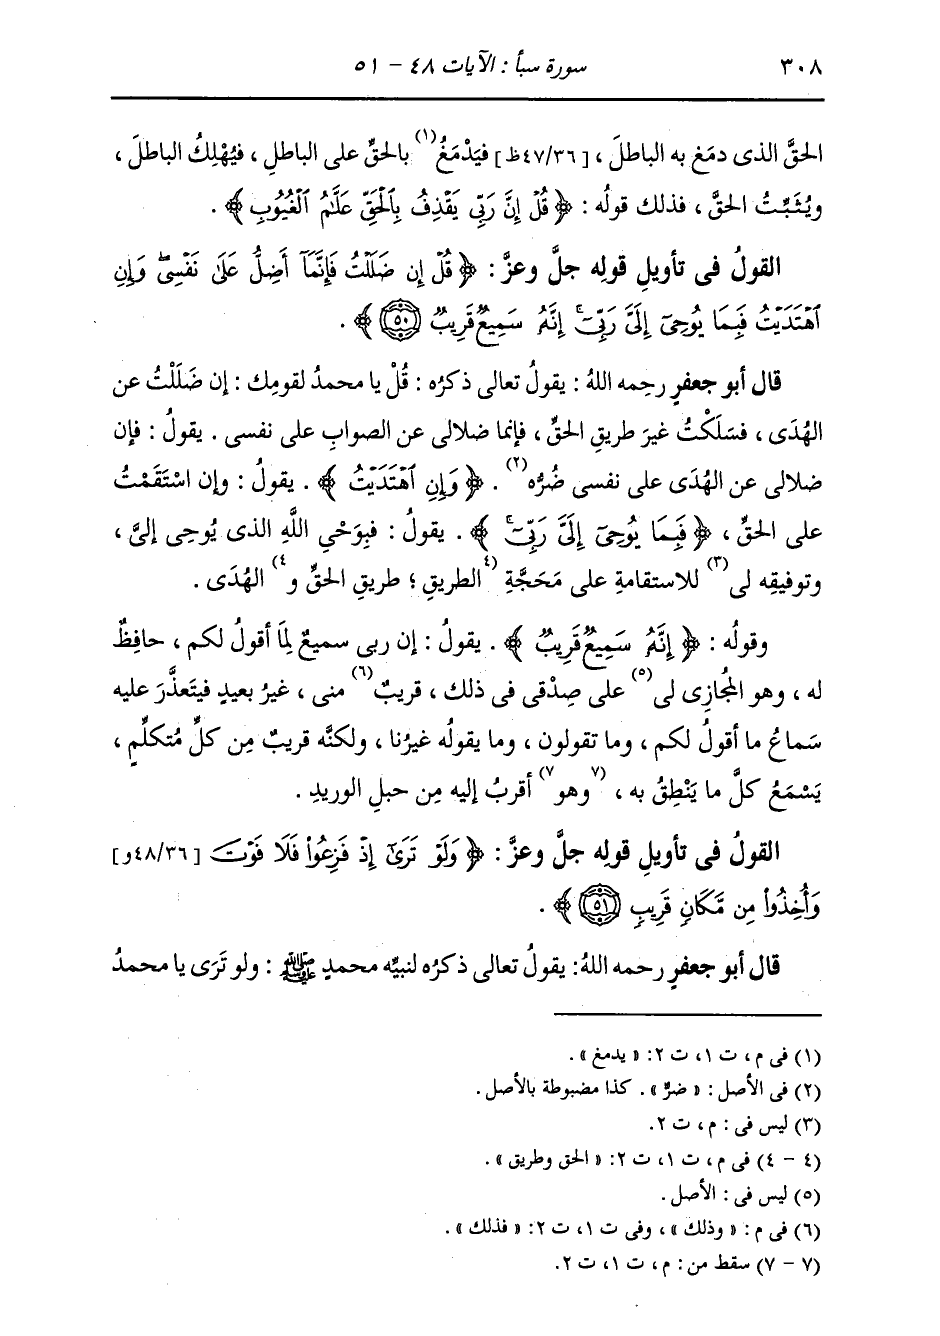 ٣٠٨ سورة سبأ : الآيات ٤٨ - ٥١
الحقَّ الذى دمَغ به الباطلَ ، [٤٧/٣٦ظ] فيَدْمَغُ(١) بالحقِّ على الباطلِ ، فيُهْلِكُ الباطلَ ،
ويُثَبِّتُ الحقَّ ، فذلك قولُه : ﴿ قُلْ إِنَّ رَبِّى يَقْذِفُ بِٱلْحَقِّ عَلَّٰمُ ٱلْغُيُوبِ ﴾ .
القولُ فى تأويلِ قولِه جلَّ وعزَّ : ﴿ قُلْ إِن ضَلَلْتُ فَإِنَّمَآ أَضِلُّ عَلَىٰ نَفْسِىۖ وَإِنِ
ٱهْتَدَيْتُ فَبِمَا يُوحِىٓ إِلَىَّ رَبِّىٓۚ إِنَّهُۥ سَمِيعٌ قَرِيبٌ ۝٥٠ ﴾ .
قال أبو جعفرٍ رحِمه اللهُ : يقولُ تعالى ذكرُه : قُلْ يا محمدُ لقومِك : إن ضَلَلْتُ عن
الهُدَى ، فسَلَكْتُ غيرَ طريقِ الحقِّ ، فإنما ضلالى عن الصوابِ على نفسى . يقولُ : فإن
ضلالى عن الهُدَى على نفسى ضُرُّه(٢) . ﴿ وَإِنِ ٱهْتَدَيْتُ ﴾ . يقولُ : وإن اسْتَقَمْتُ
على الحقِّ ، ﴿ فَبِمَا يُوحِىٓ إِلَىَّ رَبِّىٓۚ ﴾ . يقولُ : فبِوَحْيِ اللَّهِ الذى يُوحِى إلىَّ ،
وتوفيقِه لى(٣) للاستقامةِ على مَحَجَّةِ (٤الطريقِ ؛ طريقِ الحقِّ و٤) الهُدَى .
وقولُه : ﴿ إِنَّهُۥ سَمِيعٌ قَرِيبٌ ﴾ . يقولُ : إن ربى سميعٌ لِمَا أقولُ لكم ، حافِظٌ
له ، وهو المُجازِى لى(٥) على صِدْقى فى ذلك ، قريبٌ(٦) منى ، غيرُ بعيدٍ فيتَعذَّرَ عليه
سَماعُ ما أقولُ لكم ، وما تقولون ، وما يقولُه غيرُنا ، ولكنَّه قريبٌ مِن كلِّ مُتكلِّمٍ ،
يَسْمَعُ كلَّ ما يَنْطِقُ به ، (٧وهو٧) أقربُ إليه مِن حبلِ الوريدِ .
القولُ فى تأويلِ قولِه جلَّ وعزَّ : ﴿ وَلَوْ تَرَىٰٓ إِذْ فَزِعُوا۟ فَلَا فَوْتَ [٤٨/٣٦و]
وَأُخِذُوا۟ مِن مَّكَانٍ قَرِيبٍ ۝٥١ ﴾ .
قال أبو جعفرٍ رحمه اللهُ : يقولُ تعالى ذكرُه لنبيِّه محمدٍ ﷺ : ولو تَرَى يا محمدُ
(١) فى م، ت ١، ت ٢: « يدمغ » .
(٢) فى الأصل : « ضرٌّ » . كذا مضبوطة بالأصل .
(٣) ليس فى : م ، ت ٢.
(٤ - ٤) فى م، ت ١، ت ٢: « الحق وطريق » .
(٥) ليس فى : الأصل .
(٦) فى م: « وذلك » ، وفى ت ١، ت ٢: « فذلك » .
(٧ - ٧) سقط من : م ، ت ١، ت ٢.